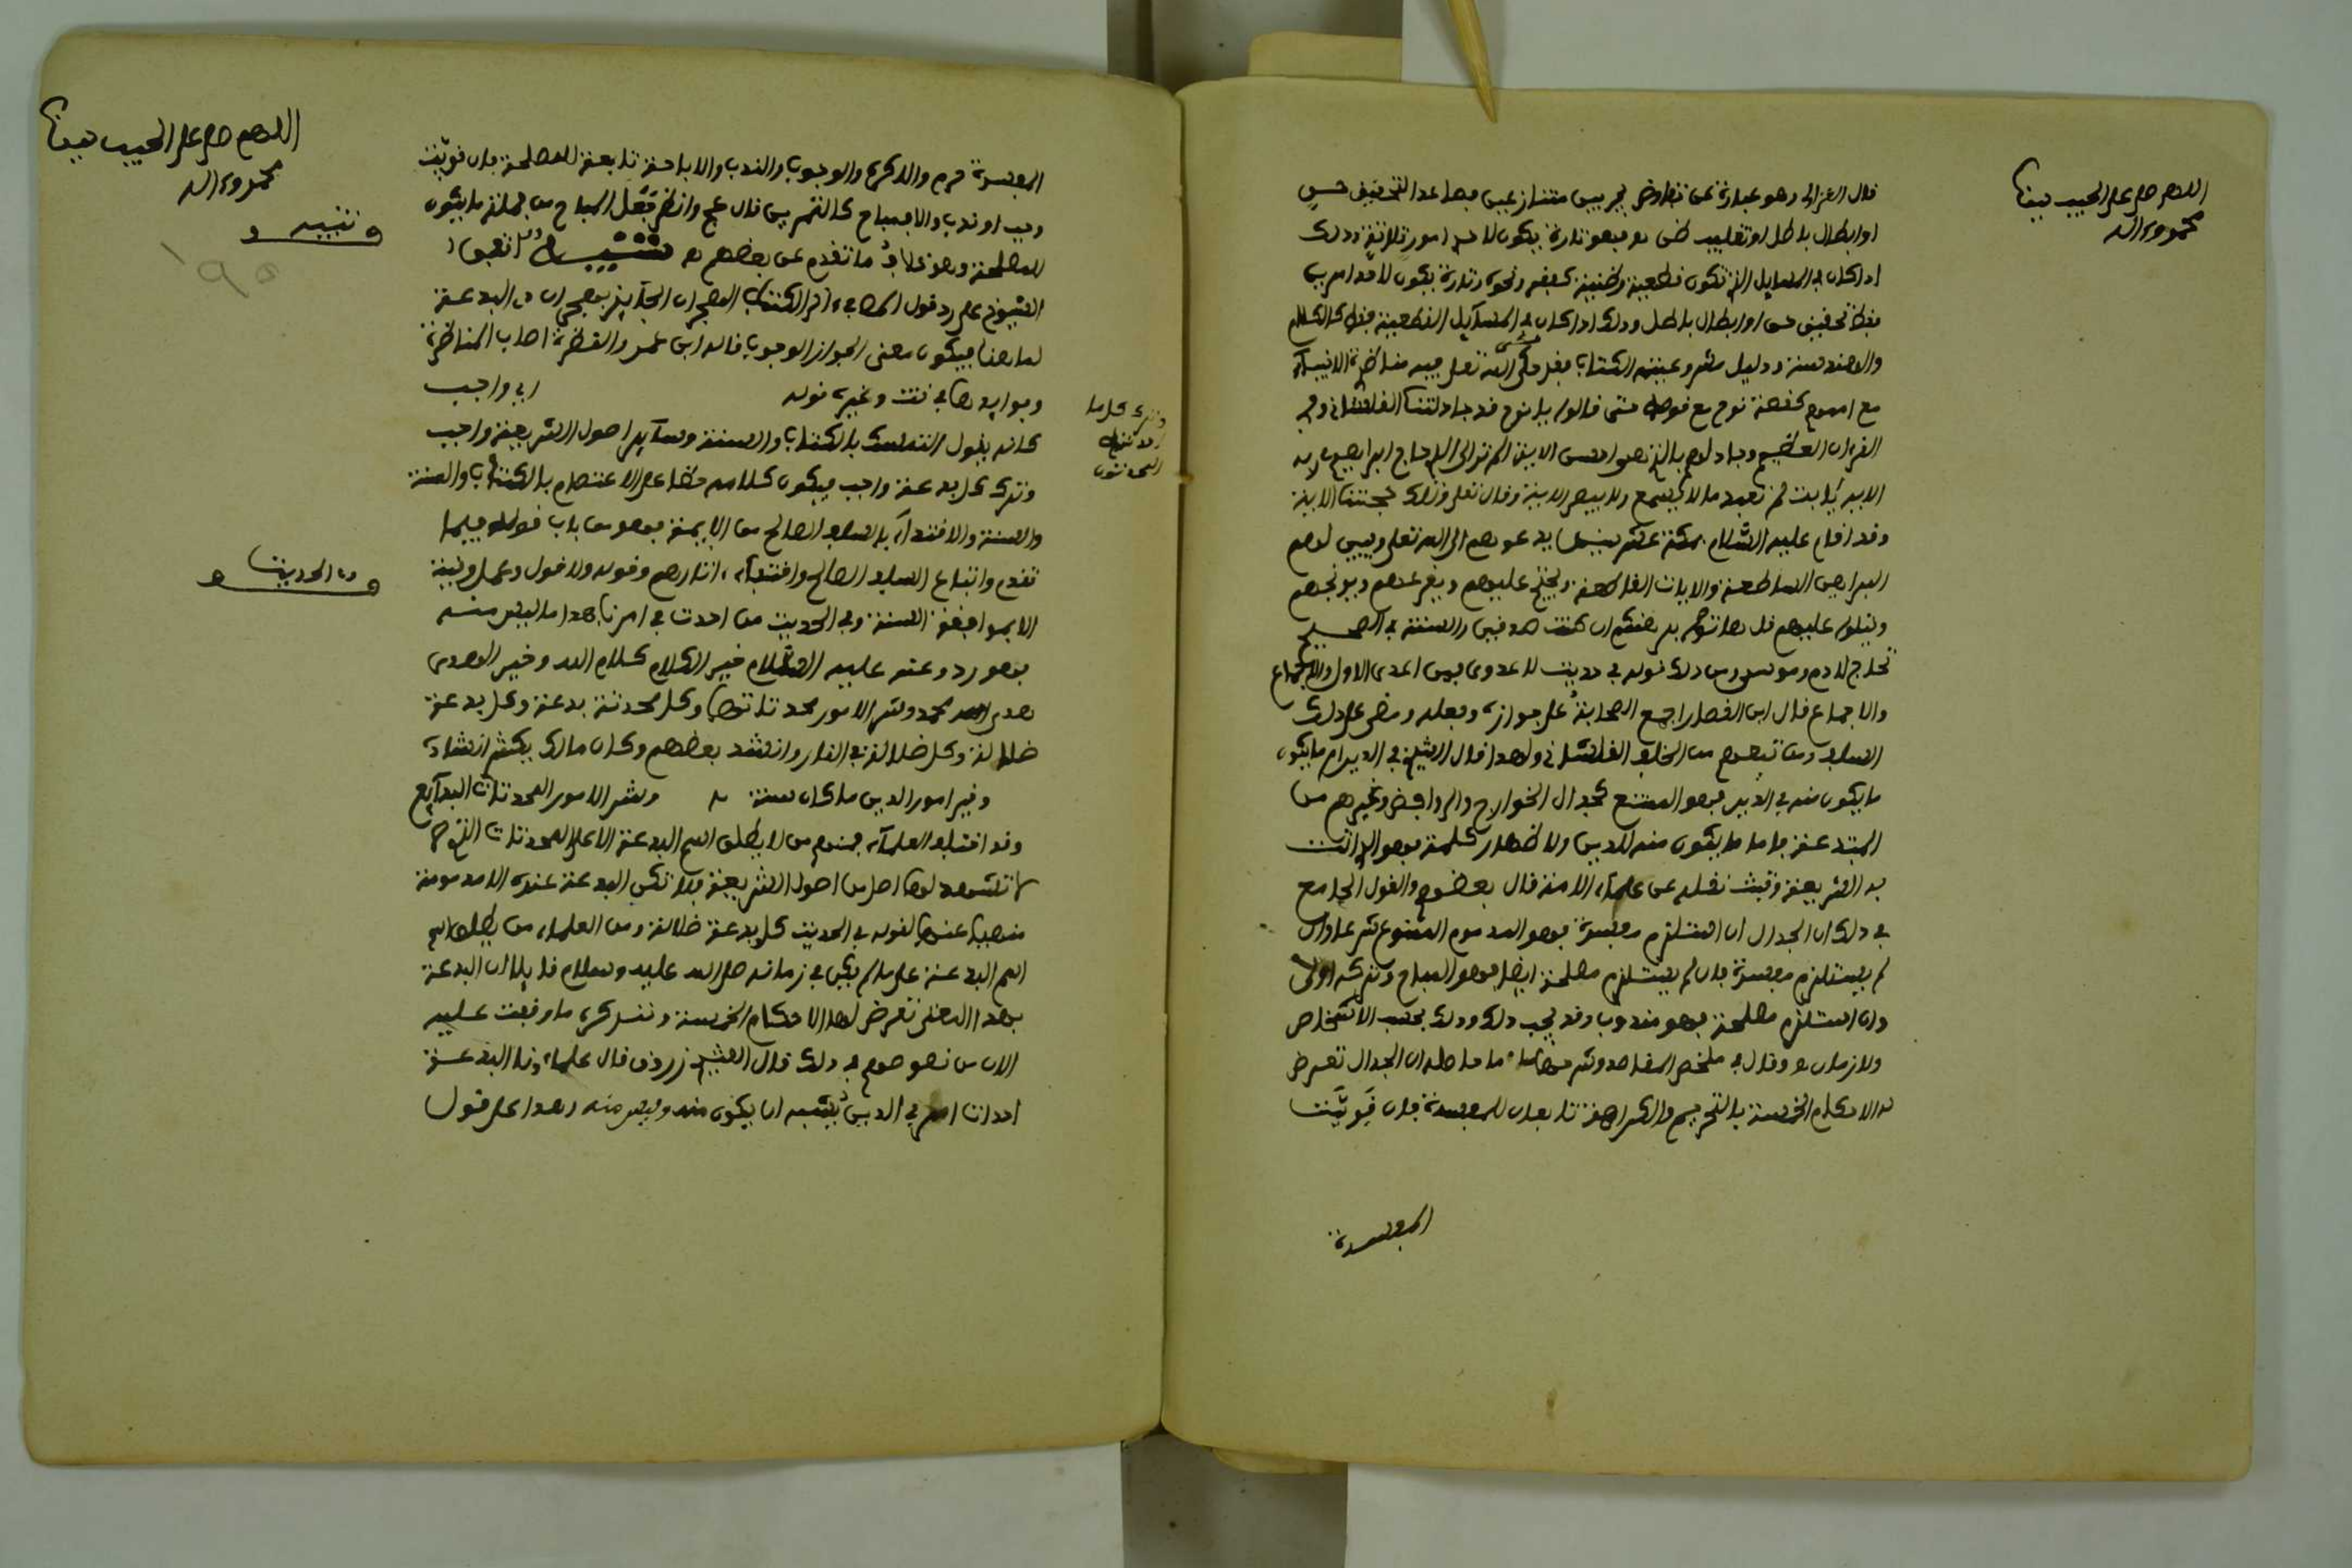 اللهم صل على الحبيب سيدنا
محمد وءاله
قال الغزالي وهو عبارة عن تفاوض يجري بين متنازعين فصاعدا لتحقيق حق
او ابطال باطل او تغليب ظن به فهو تارة يكون لاحد امور ثلاثة وذلك
اذا كان في المسايل التي تكون قطعية وظنية كفقه ونحوه وتارة يكون لاحد امرين
فقط تحقيق حق او ابطال باطل وذلك اذا كان في المسآيل القطعية فقط كالكلام
والاصل سنة ودليل مشروعيته الكتاب فقد حكى الله تعلى فيه مناظرة الانبيآء
مع اممهم كقصة نوح مع قومه حتى قالوا يا نوح قد جادلتنا الفاشاني وفي
القرءان العظيم وجادلهم بالتي هي احسن الاية الم تر الى الذي حاج ابراهيم في ربه
الاية يا ابت لم تعبد ما لا يسمع ولا يبصر الاية وقال تعلى وتلك حجتنا الاية
وقد اقام عليه السلام بمكة عشر سنين يدعوهم الى الله تعلى ويبين لهم
البراهين الساطعة والايات القاطعة ويحتج عليهم ويقرعهم ويوبخهم
ويتلوا عليهم قل هاتوا برهنكم ان كنتم صدقين والسنة في الصحيح
تحاج ءادم وموسى ومن ذلك قوله في حديث لا عدوى فمن اعدى الاول والاجماع
والاجماع قال ابن القصار اجمع الصحابة على جوازه وفعله ومضى على ذلك
السلف ومن تبعهم من الخلف الفاشاني ولهذا قال الشيخ في الدين اي ما يكون
ما يكون منه في الدين فهو الممتنع كجدال الخوارج والروافض وغيرهم من
المبتدعة واما ما يكون منه للدين ولاظهار كلمته فهو الذي اتت
به الشريعة وثبت نقله عن علمآء الامة قال بعضهم والقول الجامع
في ذلك ان الجدال ان استلزم مفسدة فهو المذموم الممنوع شرعا وان
لم يستلزم مفسدة فان لم يستلزم مصلحة ايضا فهو المباح وتركه اولى
وان استلزم مصلحة فهو مندوب وقد يجب ذلك وذلك بحسب الاشخاص
والازمان وقال في ملخص المقاصد وشرحها ما حاصله ان الجدال تعرض
له الاحكام الخمسة فالتحريم والكراهة تابعان للمفسدة فان قويت
المفسدة
اللهم صل على الحبيب سيدنا
محمد وءاله
المفسدة حرم والا كره والوجوب والندب والاباحة تابعة للمصلحة فان قويت
وجب او ندب والا فمباح كالتمرين قال عج وانظر جعل المباح من جملة ما يكون
للمصلحة وهو خلاف ما تقدم عن بعضهم تنبيه
الشيوخ على رد قول
لما هنا فيكون معنى الجواز الوجوب قاله ابن عمر والقطرة اصاب المناظرة
وجوابه وغيره قوله اي واجب
كانه يقول التمسك بالكتاب والسنة وسآير اصول الشريعة واجب
وترك كل بدعة واجب فيكون كلامه حضا على الاعتصام بالكتاب والسنة
والسنة والاقتدآء بالسلف الصالح من الايمة فهو من باب قوله فيما
تقدم واتباع السلف الصالح واقتفآء ءاثارهم وقوله ولا قول وعمل ونية
الا بموافقة السنة وفي الحديث من احدث في امرنا هذا ما ليس منه
فهو رد وعنه عليه السلام خير الكلام كلام الله وخير الهدي
هدي محمد وشر الامور محدثاتها وكل محدثة بدعة وكل بدعة
ضلالة وكل ضلالة في النار وانشد بعضهم وكان مالك يكثر انشاده
وخير امور الدين ما كان سنة وشر الامور المحدثات البدآيع
وقد اختلف العلمآء فمنهم من لا يطلق اسم البدعة الا على المحدثات التي
لا تشهد لها اصل من اصول الشريعة فلا تكن البدعة عنده الا مذمومة
منهيا عنها لقوله في الحديث كل بدعة ضلالة ومن العلماء من يطلق اسم
اسم البدعة على ما لم يكن في زمانه صلى الله عليه وسلم قايلا ان البدعة
بهذا المعنى تعرض لها الاحكام الخمسة ونذكر ما وقفت عليه
الان من نصوصهم في ذلك قال الشيخ زروق قال علماؤنا البدعة
احداث امر في الدين يشبه ان يكون منه وليس منه وهذا على قول
تنبيه
195
وترك كل ما
احدثه
المحدثون
وفي الحديث